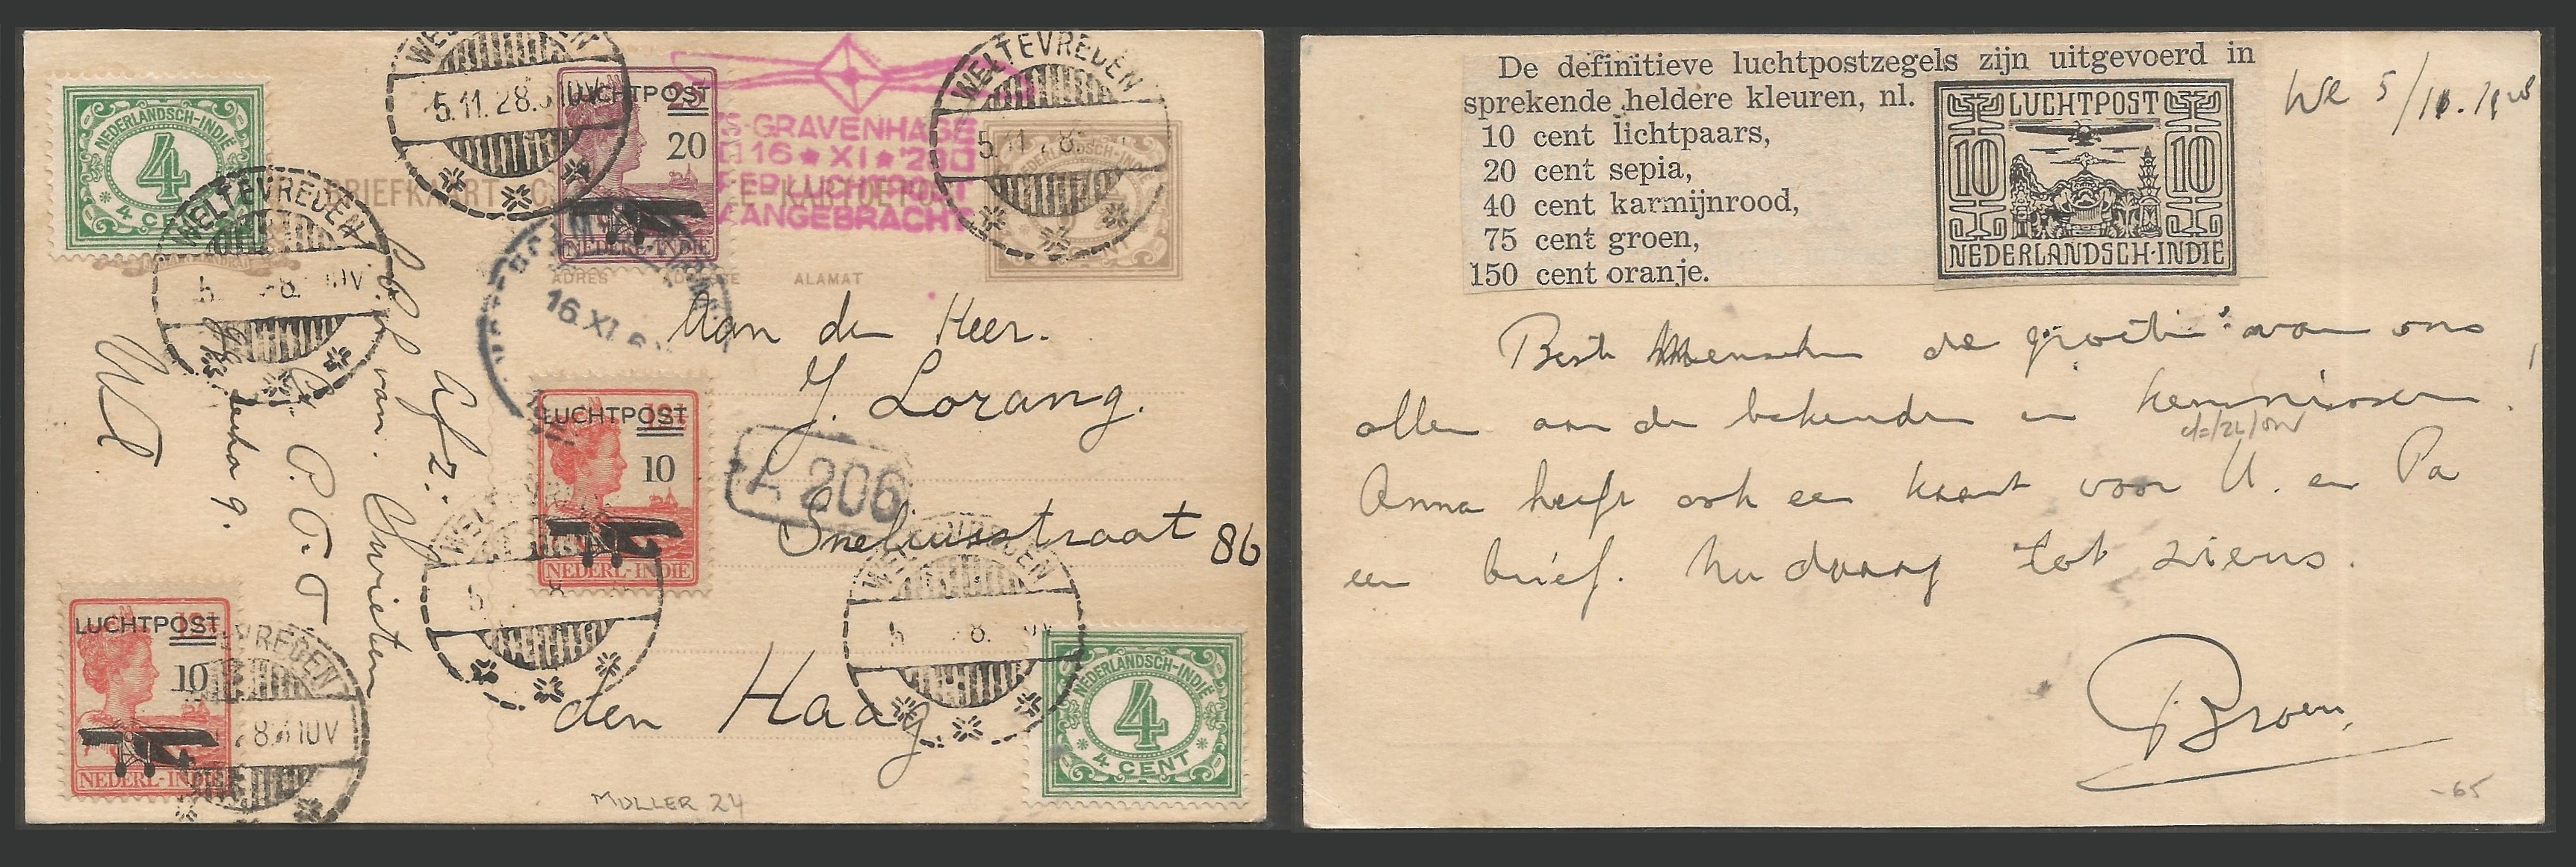 WELTEVREDEN
5.11.28. 10V
WELTEVREDEN
5.11.28.
NEDERLANDSCH-INDIE
4
4 CENT
LUCHTPOST
20
NEDERL-INDIE
'S-GRAVENHAGE
16 ★ XI ★ '28
PER LUCHTPOST
AANGEBRACHT
BRIEFKAART
ADRES
ALAMAT
WELTEVREDEN
16.XI
Aan den Heer.
J. Lorang.
LUCHTPOST
10
NEDERL-INDIE
A 206
Sneliusstraat 86
den Haag
WELTEVREDEN
WELTEVREDEN
Afz:
P.T.T.
LUCHTPOST
10
NEDERL-INDIE
WELTEVREDEN
28. 10V
NEDERLANDSCH-INDIE
4
4 CENT
MULLER 24
De definitieve luchtpostzegels zijn uitgevoerd in
sprekende heldere kleuren, nl.
10 cent lichtpaars,
20 cent sepia,
40 cent karmijnrood,
75 cent groen,
150 cent oranje.
LUCHTPOST
10 10
NEDERLANDSCH-INDIE
Beste Menschen de groeten van ons
allen aan de bekenden en kennissen.
Anna heeft ook een kaart voor U. en Pa
een brief. tot ziens.
Broer.
-65